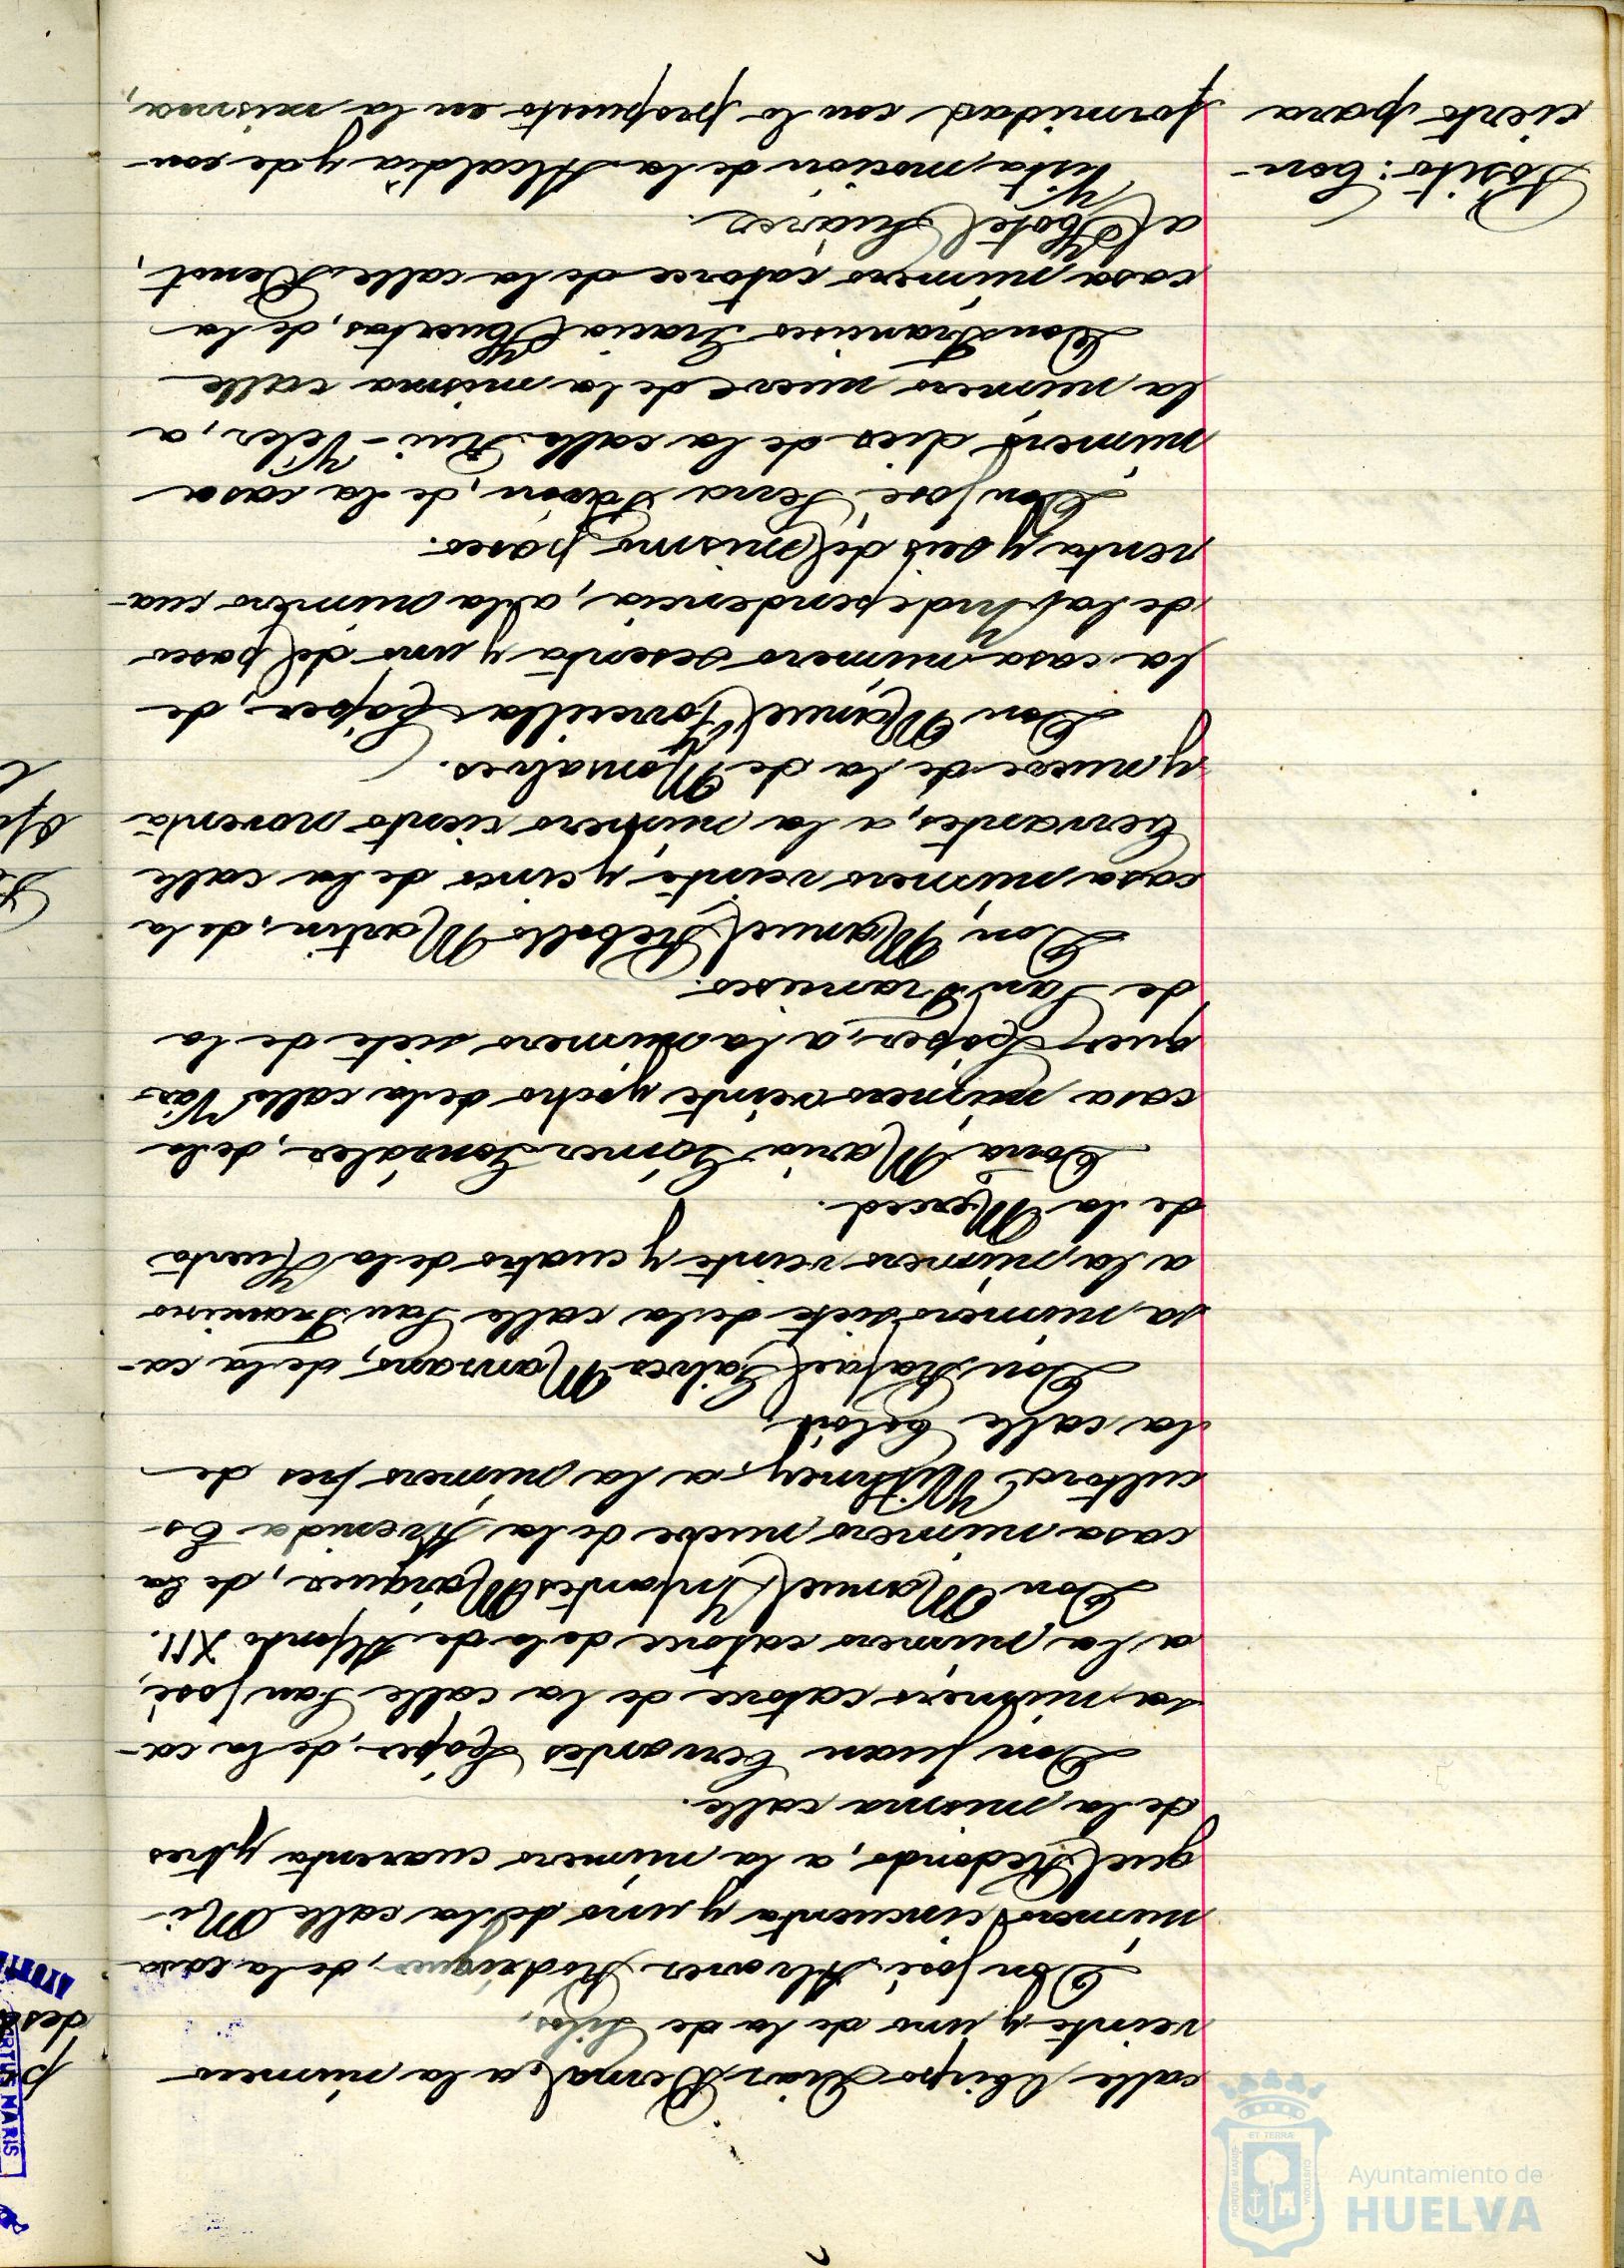 calle Obispo Diaz Bernal, a la número
veinte y uno de la de Silos.
Don José Alvarez Rodriguez, de la casa
número cincuenta y uno de la calle Mi-
guel Redondo, a la número cuarenta y tres
de la misma calle.
Don Juan Cervantes López, de la ca-
sa número catorce de la calle San José,
a la número catorce de la de Alfonso XII.
Don Manuel Infantes Márquez, de la
casa número nueve de la Avenida Es-
cultora Withney, a la número tres de
la calle
Don Rafael Galvez Manzano, de la ca-
sa número siete de la calle San Francisco
a la número veinte y cuatro de la Huerta
de la Merced.
Doña Maria Gómez González, de la
casa número veinte y ocho de la calle Váz-
quez López, a la número siete de la
de San Francisco.
Don Manuel Rebollo Martin, de la
casa número veinte y cinco de la calle
Cervantes, a la número ciento noventa
y nueve de la de Monsalves.
Don Manuel López, de
la casa número sesenta y uno del paseo
de la Independencia, a la número cua-
renta y seis del mismo paseo.
Don José Serra de la casa
número diez de la calle Rui-Velez, a
la número nueve de la misma calle
Don Francisco Gracia Huertas, de la
casa número catorce de la calle Berdi,
al Hotel Suárez.
Pósito: Con-
cierto para
Vista moción de la Alcaldia y de con-
formidad con lo propuesto en la misma,
Ayuntamiento de
HUELVA